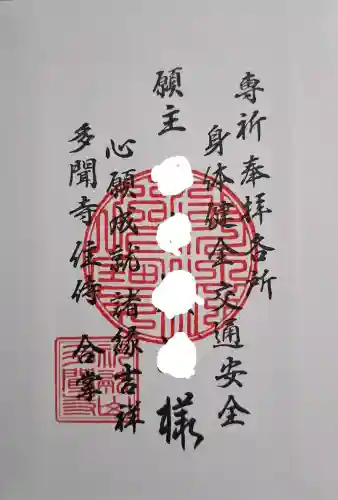 専祈奉拝各所
身体健全交通安全
願主
様
心願成就諸縁吉祥
多聞寺住侍 合掌